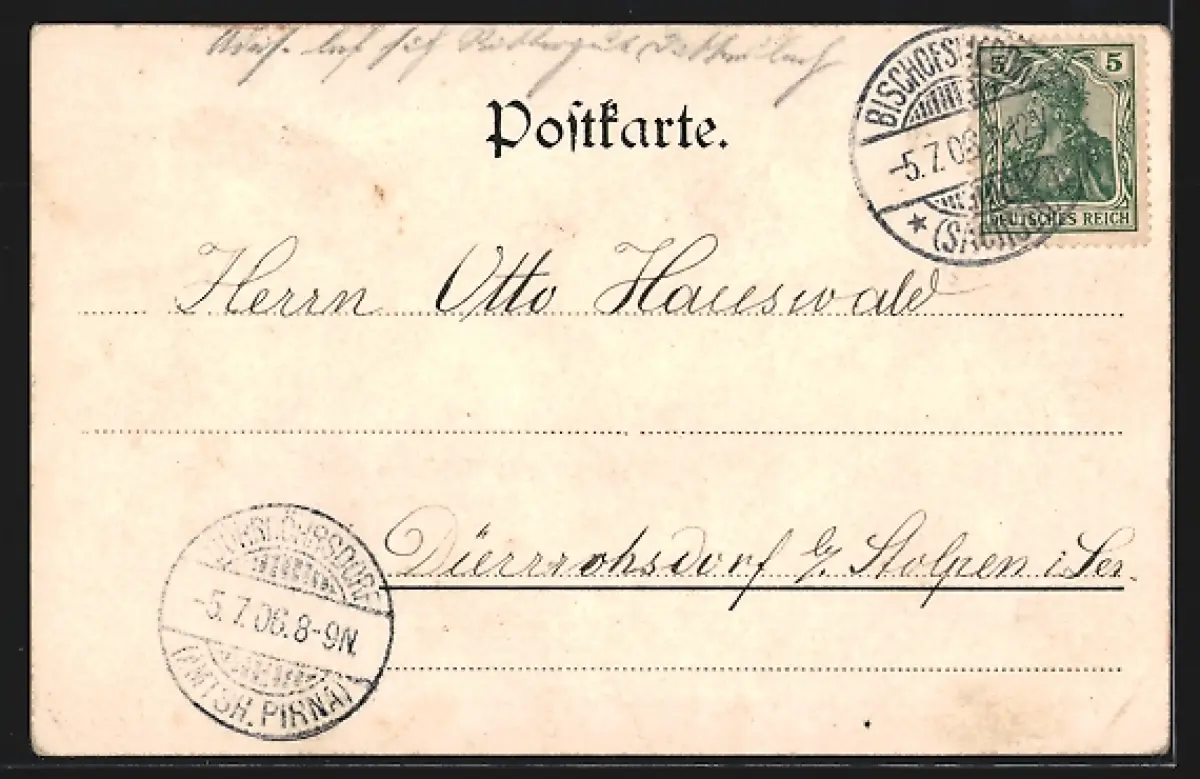 Rittergut
Postkarte.
BISCHOFSWERDA
5 5
-5.7.06
(SACHSEN)
DEUTSCHES REICH
Herrn Otto Hauswald
Dürrröhrsdorf b/. Stolpen i. Sa.
DÜRRRÖHRSDORF
-5.7.06.8-9N.
(AMTSH. PIRNA)